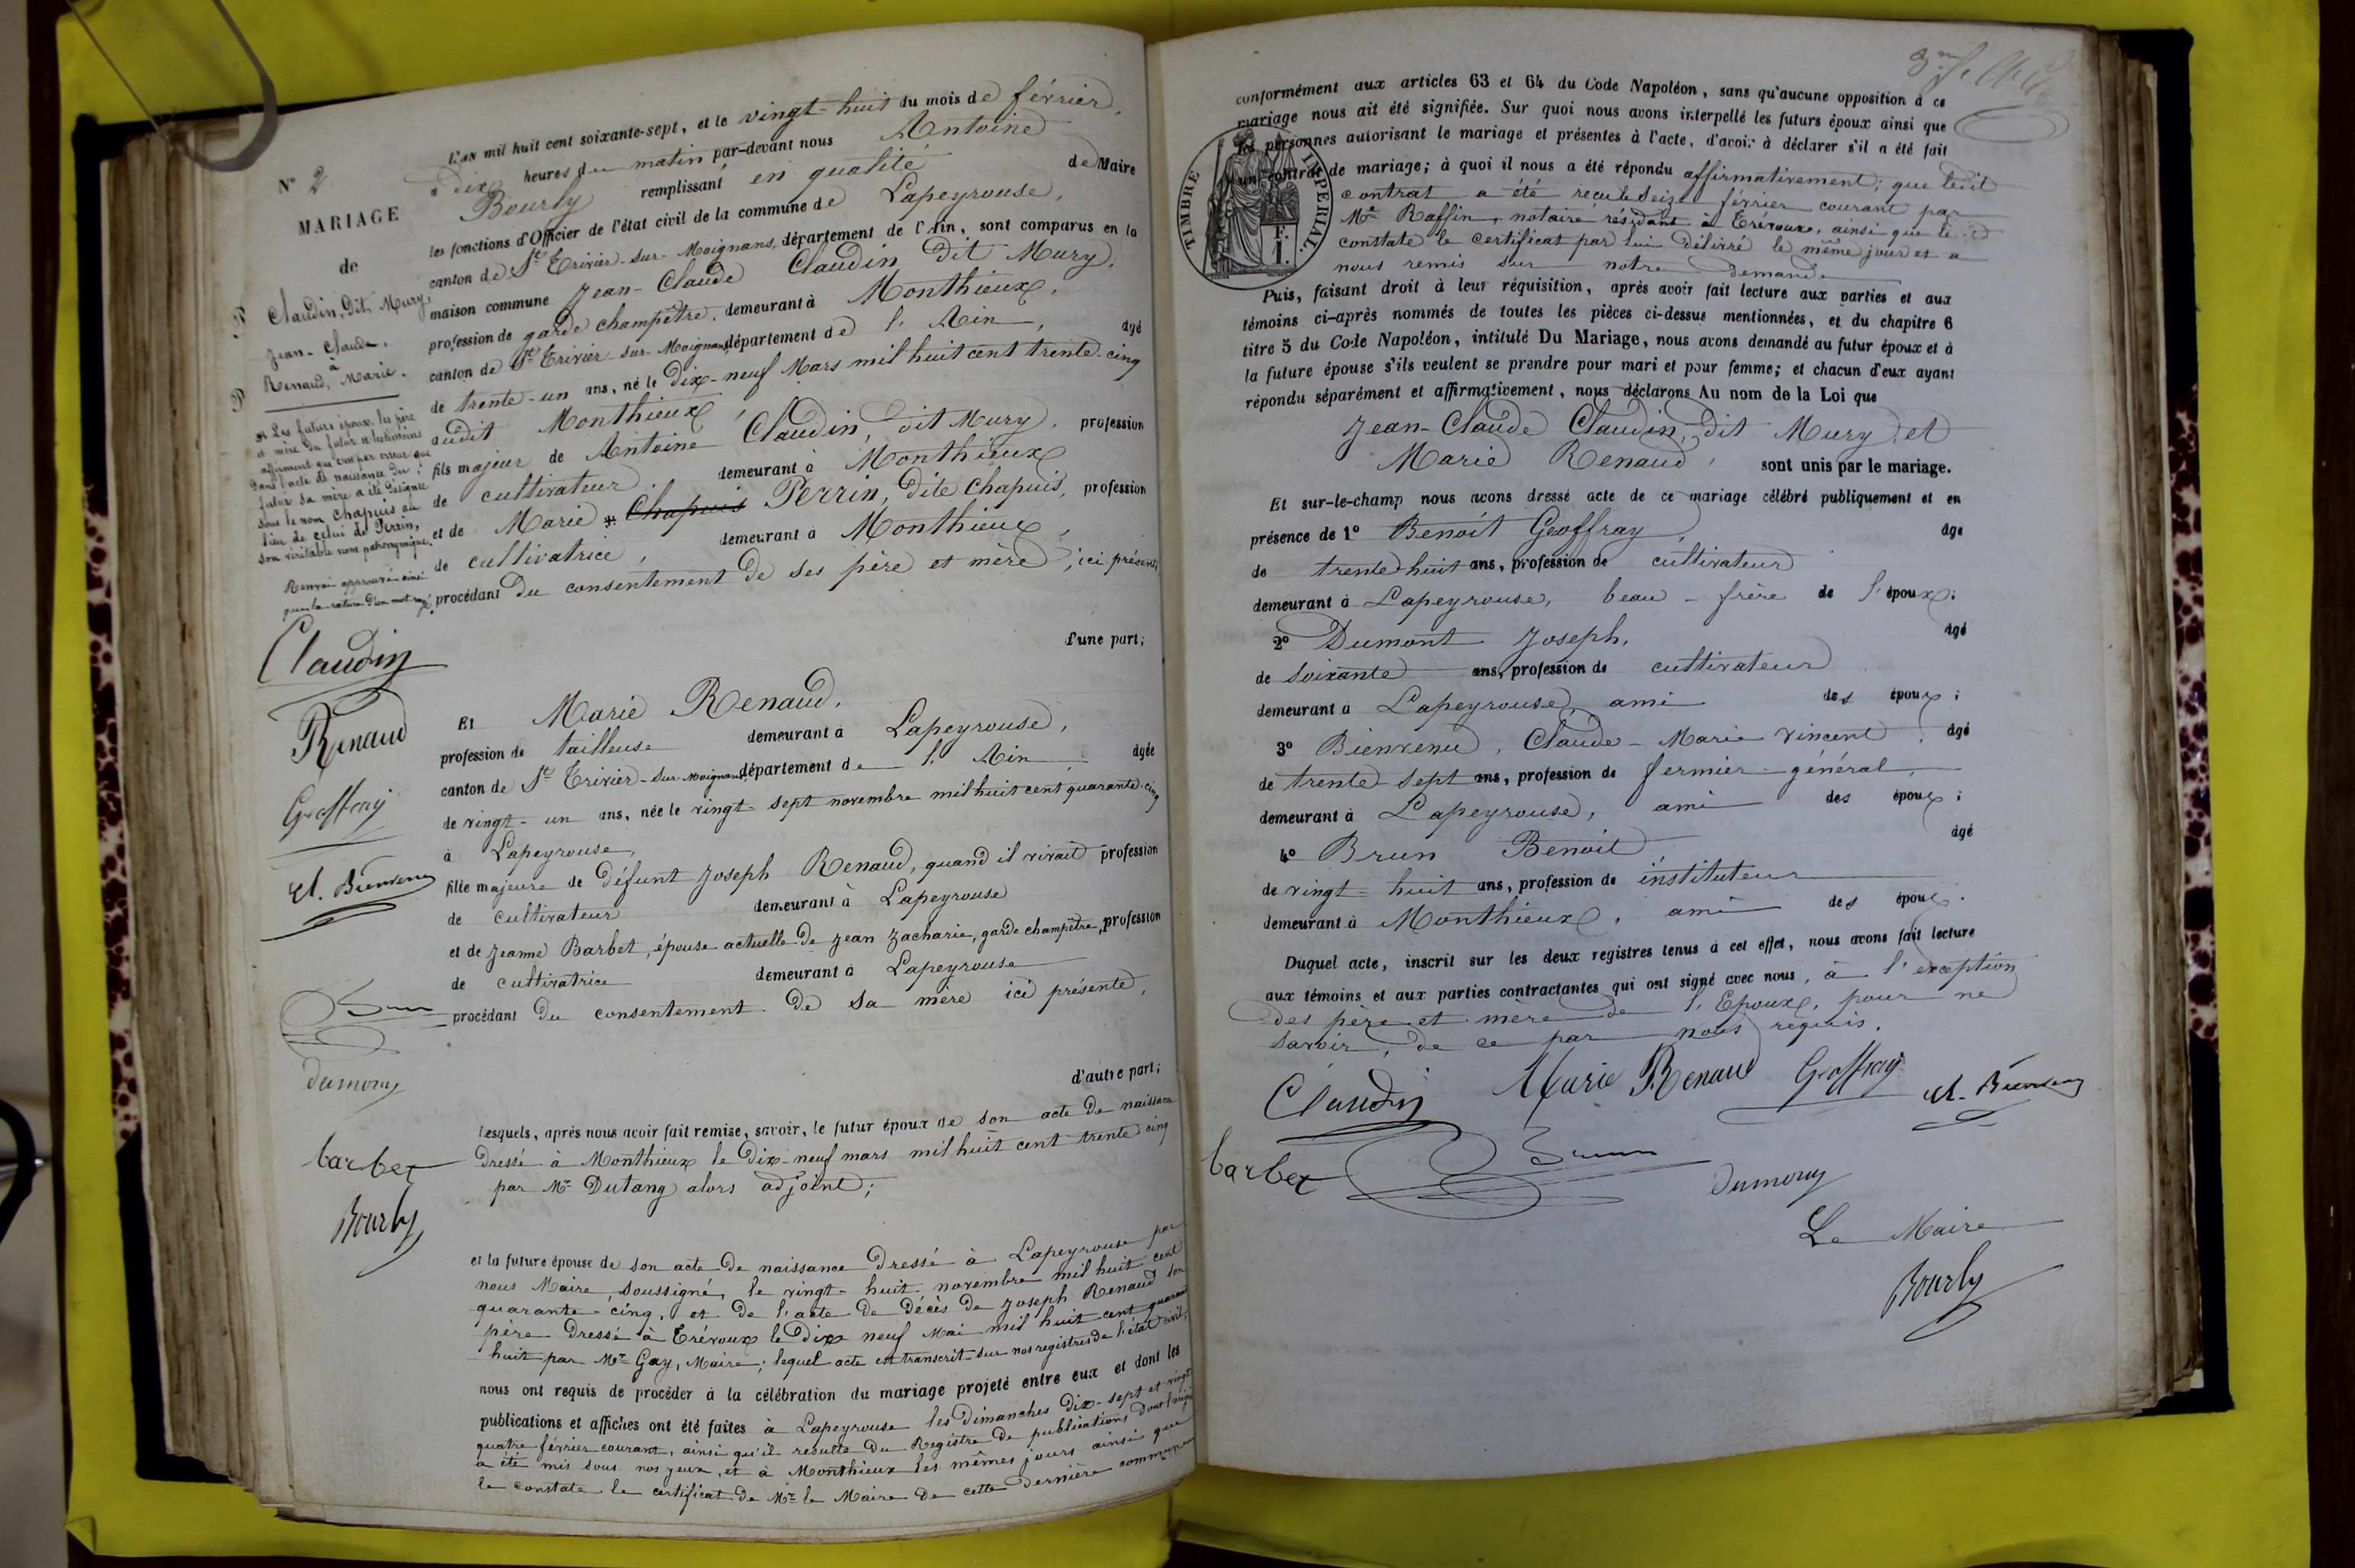 N° 2
MARIAGE
de
Claudin, dit Mury,
Jean-Claude.
à
Renaud, Marie.
* Les futurs époux, les père
et mère du futur et les témoins
affirment que c'est par erreur que
dans l'acte de naissance du
futur sa mère a été désignée
sous le nom Chapuis au
lieu de celui de Perrin,
son véritable nom patronymique.
Renvoi approuvé ainsi
que la rature d'un mot rayé.
Claudin
Renaud
Geoffray
Cl. Bienvenu
Brun
dumony
barbet
Bourly
L'an mil huit cent soixante-sept, et le vingt-huit du mois de février,
à dix heures du matin par-devant nous Antoine
Bourly remplissant en qualité de Maire
les fonctions d'Officier de l'état civil de la commune de Lapeyrouse,
canton de St Trivier-sur-Moignans, département de l'Ain, sont comparus en la
maison commune Jean-Claude Claudin dit Mury,
profession de garde champêtre, demeurant à Monthieux,
canton de St Trivier-sur-Moignans, département de l'Ain, âgé
de trente-un ans, né le dix-neuf Mars mil huit cent trente-cinq
audit Monthieux,
fils majeur de Antoine Claudin, dit Mury, profession
de cultivateur, demeurant à Monthieux
et de Marie * Chapuis Perrin, dite Chapuis, profession
de cultivatrice, demeurant à Monthieux,
procédant du consentement de ses père et mère, ici présents
d'une part;
Et Marie Renaud,
profession de tailleuse demeurant à Lapeyrouse,
canton de St Trivier-sur-Moignans, département de l'Ain, âgée
de vingt-un ans, née le vingt-sept novembre mil huit cent quarante-cinq
à Lapeyrouse,
fille majeure de défunt Joseph Renaud, quand il vivait profession
de cultivateur demeurant à Lapeyrouse
et de Jeanne Barbet, épouse actuelle de Jean Zacharie, garde champêtre, profession
de cultivatrice demeurant à Lapeyrouse
procédant du consentement de sa mère ici présente,
d'autre part;
Lesquels, après nous avoir fait remise, savoir, le futur époux de son acte de naissance
dressé à Monthieux le dix-neuf mars mil huit cent trente cinq
par Mr Dutang alors adjoint;
et la future épouse de son acte de naissance dressé à Lapeyrouse par
nous Maire soussigné, le vingt-huit novembre mil huit cent
quarante-cinq, et de l'acte de décès de Joseph Renaud son
père dressé à Trévoux le dix neuf Mai mil huit cent quarante
huit par Mr Gay, Maire; lequel acte est transcrit sur nos registres de l'état civil,
nous ont requis de procéder à la célébration du mariage projeté entre eux et dont les
publications et affiches ont été faites à Lapeyrouse les dimanches dix-sept et vingt-
quatre février courant, ainsi qu'il résulte du Registre de publications dont
a été mis sous nos yeux, et à Monthieux les mêmes jours ainsi que
le constate le certificat de Mr le Maire de cette dernière commune
conformément aux articles 63 et 64 du Code Napoléon, sans qu'aucune opposition à ce
mariage nous ait été signifiée. Sur quoi nous avons interpellé les futurs époux ainsi que
les personnes autorisant le mariage et présentes à l'acte, d'avoir à déclarer s'il a été fait
un contrat de mariage; à quoi il nous a été répondu affirmativement; que ledit
contrat a été reçu le seize février courant par
Me Raffin, notaire résidant à Trévoux, ainsi que le
constate le certificat par lui délivré le même jour et a
nous remis sur notre demande
TIMBRE IMPERIAL.
F.
1.
Puis, faisant droit à leur réquisition, après avoir fait lecture aux parties et aux
témoins ci-après nommés de toutes les pièces ci-dessus mentionnées, et du chapitre 6
titre 5 du Code Napoléon, intitulé Du Mariage, nous avons demandé au futur époux et à
la future épouse s'ils veulent se prendre pour mari et pour femme; et chacun d'eux ayant
répondu séparément et affirmativement, nous déclarons Au nom de la Loi que
Jean-Claude Claudin, dit Mury, et
Marie Renaud, sont unis par le mariage.
Et sur-le-champ nous avons dressé acte de ce mariage célébré publiquement et en
présence de 1° Benoît Geoffray, âgé
de trente-huit ans, profession de cultivateur
demeurant à Lapeyrouse, beau-frère de l'époux;
2° Dumont Joseph, âgé
de soixante ans, profession de cultivateur
demeurant à Lapeyrouse, ami des époux;
3° Bienvenu, Claude-Marie Vincent, âgé
de trente sept ans, profession de fermier-général,
demeurant à Lapeyrouse, ami des époux;
4° Brun Benoit âgé
de vingt-huit ans, profession de instituteur
demeurant à Monthieux, ami des époux.
Duquel acte, inscrit sur les deux registres tenus à cet effet, nous avons fait lecture
aux témoins et aux parties contractantes qui ont signé avec nous, à l'exception
des père et mère de l'Epoux, pour ne
savoir, de ce par nous requis.
Claudin Marie Renaud Geoffray Cl. Bienvenu
barbet Brun dumony
Le Maire
Bourly